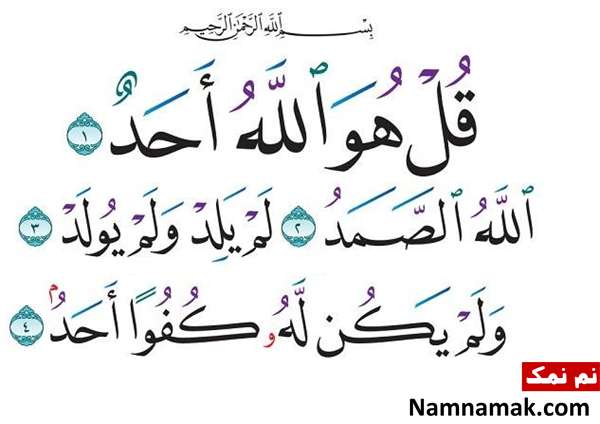 بِسْمِ اللَّهِ الرَّحْمَٰنِ الرَّحِيمِ
قُلْ هُوَ ٱللَّهُ أَحَدٌ ١
ٱللَّهُ ٱلصَّمَدُ ٢ لَمْ يَلِدْ وَلَمْ يُولَدْ ٣
وَلَمْ يَكُن لَّهُۥ كُفُوًا أَحَدٌۢ ٤
نم نمک
Namnamak.com